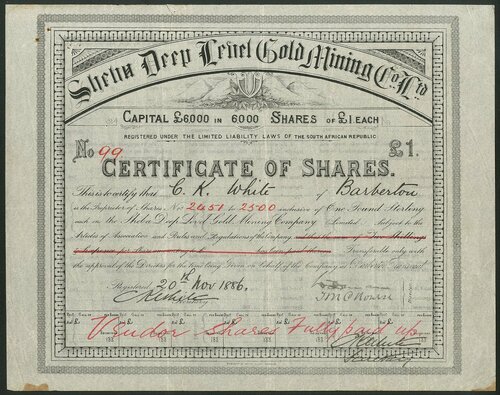 Sheba Deep Level Gold Mining Co. Ltd
CAPITAL £6000 IN 6000 SHARES OF £1. EACH
REGISTERED UNDER THE LIMITED LIABILITY LAWS OF THE SOUTH AFRICAN REPUBLIC
No 99 £1.
CERTIFICATE OF SHARES.
This is to certify that C. K. White of Barberton
is the Proprietor of Shares, No 2451 to 2500 inclusive of One Pound Sterling
each in the Sheba Deep Level Gold Mining Company Limited Subject to the
Articles of Association and Rules and Regulations of the Company
the approval of the Directors for the time being Given on behalf of the Company at
Registered 20th Nov 1886.
Vendor Shares Fully paid up
Secretary